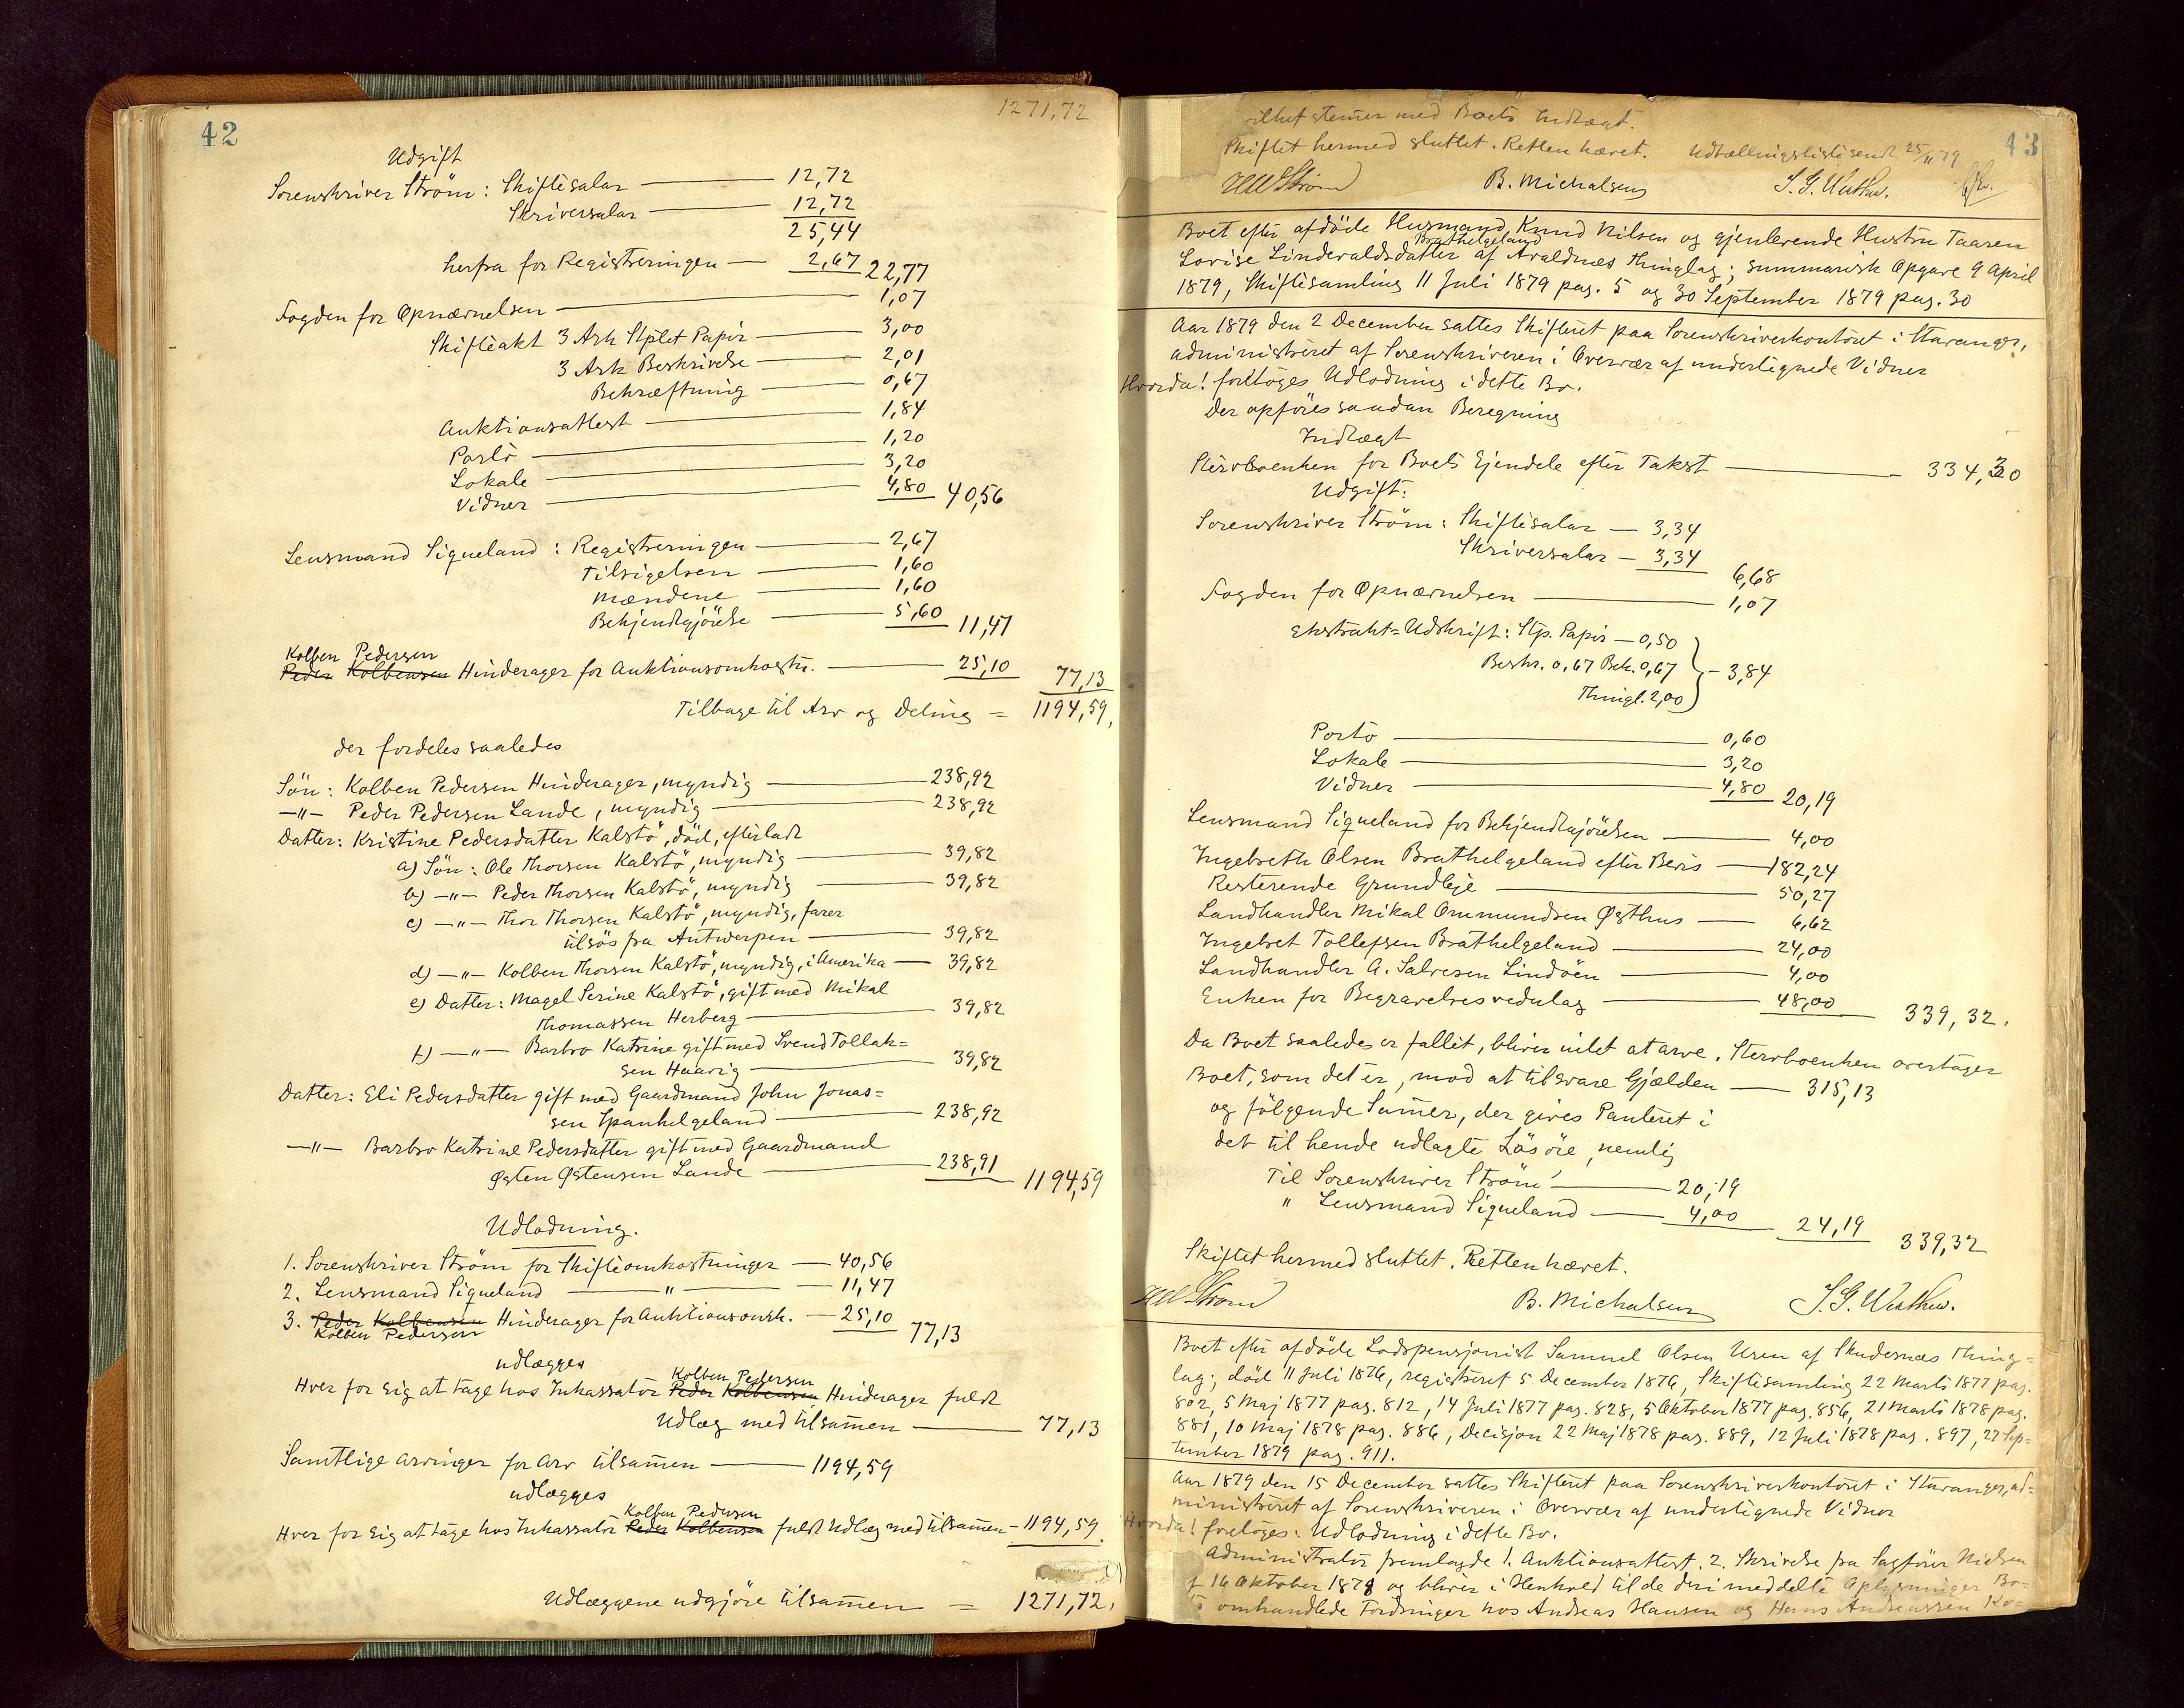 42
1271,72
Udgift
Sorenskriver Ström: Skiftesalar 12,72
Skriversalar 12,72
25,44
herfra for Registreringen 2,67 22,77
Fogden for Opnævnelsen 1,07
Skifteakt 3 Ark Stplet Papir 3,00
3 Ark Beskrivelse 2,01
Bekræftning 0,67
Auktionsattest 1,84
Porto 1,20
Lokale 3,20
Vidner 4,80 40,56
Lensmand Siqueland: Registreringen 2,67
Tilsigelsen 1,60
Mændene 1,60
Bekjendtgjörelse 5,60 11,47
Kolben Pedersen
Peder Kolbensen Hinderager for Auktionsomkostn. 25,10 77,13
Tilbage til Arv og Deling = 1194,59,
der fordeles saaledes
Sön: Kolben Pedersen Hinderager, myndig 238,92
—"— Peder Pedersen Lande, myndig 238,92
Datter: Kristine Pedersdatter Kalstö, död, efterladt
a) Sön: Ole Thorsen Kalstö, myndig 39,82
b) —"— Peder Thorsen Kalstö, myndig 39,82
c) —"— Thor Thorsen Kalstö, myndig, farer
tilsös fra Antwerpen 39,82
d) —"— Kolben Thorsen Kalstö, myndig, i Amerika 39,82
e) Datter: Magel Serine Kalstö, gift med Mikal
Thomassen Herberg 39,82
f) —"— Barbro Katrine gift med Svend Tollak=
sen Haavig 39,82
Datter: Eli Pedersdatter gift med Gaardmand John Jonas=
sen Spanhelgeland 238,92
—"— Barbro Katrine Pedersdatter gift med Gaardmand
Østen Østensen Lande 238,91 1194,59
Udlodning.
1. Sorenskriver Ström for Skifteomkostninger 40,56
2. Lensmand Siqueland " 11,47
3. Peder Kolbensen Hinderager for Auktionsomk. 25,10 77,13
Kolben Pedersen
udlægges
Kolben Pedersen
Hver for sig at tage hos Inkassator Peder Kolbensen Hinderager fuldt
Udlæg med tilsamen 77,13
Samtlige Arvinger for Arv tilsamen 1194,59
udlægges
Kolben Pedersen
Hver for sig at tage hos Inkassator Peder Kolbensen fuldt Udlæg med tilsamen 1194,59.
Udlæggene udgjöre tilsamen = 1271,72,
43
ilket stemer med Boets Indtægt.
Skiftet hermed sluttet. Retten hævet. Udtællingsliste sendt 25/11 79
HW Ström B. Michalsen
Boet efter afdöde Husmand Knud Nilsen og gjenlevende Hustru Taaren
Brathelgeland
Lovise Linderaldsdatter af Avaldnæs Thinglag; summarisk Opgave 9 April
1879, Skiftesamling 11 Juli 1879 pag. 5 og 30 September 1879 pag. 30
Aar 1879 den 2 December sattes Skifteret paa Sorenskriverkontoret i Stavanger,
administreret af Sorenskriveren i Overvær af underlignede Vidner
Hvorda! foretoges Udlodning i dette Bo.
Der opföres saadan Beregning
Indtægt
Stervboenken for Boets Ejendele efter Takst 334,30
Udgift:
Sorenskriver Ström: Skiftesalar 3,34
Skriversalar 3,34 6,68
Fogden for Opnævnelsen 1,07
Ekstrakt=Udskrift: Stp. Papir 0,50
Beskr. 0,67 Bek. 0,67 3,84
Thingl. 2,00
Porto 0,60
Lokale 3,20
Vidner 4,80 20,19
Lensmand Siqueland for Bekjendtgjörelsen 4,00
Ingebreth Olsen Brathelgeland efter Bevis 182,24
Resterende Grundleje 50,27
Landhandler Mikal Ommundsen Østhus 6,62
Ingebret Tollefsen Brathelgeland 24,00
Landhandler A. Salvesen Lindöen 4,00
Enken for Begravelsesvedulag 48,00 339,32.
Da Boet saaledes er fallit, bliver intet at arve. Stervboenken overtager
Boet, som det er, mod at tilsvare Gjælden 315,13
og fölgende Sumer, der gives Panteret i
det til hende udlagte Lösöre, nemlig
Til Sorenskriver Ström 20,19
" Lensmand Siqueland 4,00 24,19 339,32
Skiftet hermed sluttet. Retten hævet.
HW Ström B. Michalsen
Boet efter afdöde Lodspensjonist Samuel Olsen Uren af Skudesnæs Thing=
lag; död 11 Juli 1876, registreret 5 December 1876, Skiftesamling 22 Marts 1877 pag.
802, 5 Maj 1877 pag. 812, 14 Juli 1877 pag. 828, 5 Oktober 1877 pag. 856, 21 Marts 1878 pag.
881, 10 Maj 1878 pag. 886, Decisjon 22 Maj 1878 pag. 889, 12 Juli 1878 pag. 897, 27 Sep=
tember 1879 pag. 911.
Aar 1879 den 15 December sattes Skifteret paa Sorenskriverkontoret i Stavanger, ad=
ministreret af Sorenskriveren i Overvær af underlignede Vidner
Hvorda! foretoges: Udlodning i dette Bo.
Administrator fremlagde 1. Auktionsattest. 2. Skrivelse fra Sagförer Nielsen
f 16 Oktober 1878 og bliver i Henhold til de deri meddelte Oplysninger Bo=
ts omhandlede Fordringer hos Andreas Hansen og Hans Andreassen Ko=